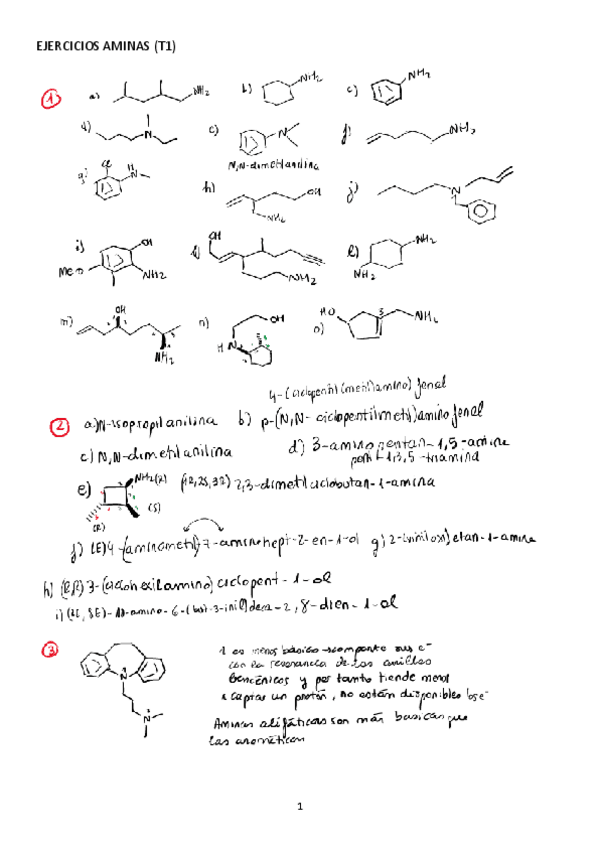 EJERCICIOS AMINAS (T1)
1 a) NH₂ b) NH₂ c) NH₂
d) N e) N f) NH₂
N,N-dimetilanilina
g) Cl H N h) OH NH₂ j) N
i) OH MeO NH₂ k) OH NH₂ l) NH₂ NH₂
m) OH NH₂ n) OH H N o) HO 3 NH₂
4-(ciclopentil(metil)amino) fenol
2 a) N-isopropilanilina b) p-(N,N-ciclopentilmetil)amino fenol
c) N,N-dimetilanilina d) 3-amino pentan-1,5-amine
pent-1,3,5-triamina
e) NH₂(R) (1R,2S,3R) 2,3-dimetilciclobutan-1-amina
(R) (S)
f) (E)4-(aminometil)-7-aminohept-2-en-1-ol g) 2-(viniloxi)etan-1-amine
h) (R,R) 3-(ciclohexilamino) ciclopent-1-ol
i) (2E, 8E)-10-amino-6-(but-3-inil)deca-2,8-dien-1-ol
3 1 es menos básico comparte sus e⁻
con la resonancia de los anillos
bencénicos y por tanto tiende menos
a captar un protón, no están disponibles los e⁻
Aminas alifáticas son más basicas que
las aromáticas
N
N
1